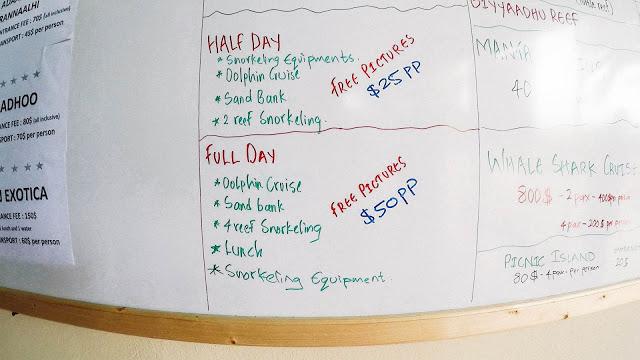 RANNAALHI
ENTRANCE FEE : 70$ (all inclusive)
TRANSPORT : 45$ per person
ADHOO
FEE : 80$ (all inclusive)
70$ per person
EXOTICA
FEE : 150$
lunch and
60$ per person
HALF DAY
* Snorkeling Equipments.
* Dolphin Cruise
* Sand Bank
* 2 reef Snorkeling.
FREE PICTURES
$25PP
FULL DAY
* Dolphin Cruise
* Sand bank
* 4 reef Snorkeling
* Lunch
* Snorkeling Equipment.
FREE PICTURES
$50PP
REEF
MANTA
40
WHALE SHARK CRUISE
800$ - 2 pax - 400$ per person
4 pax - 200$ per person
PICNIC ISLAND
80$ - 4 pax - per person
20$